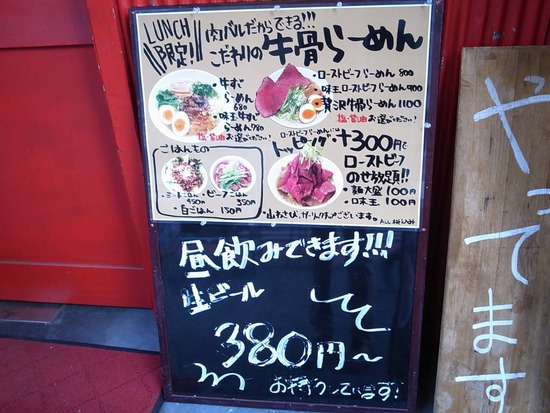 LUNCH
限定!
肉バルだからできる!!!
こだわりの牛骨らーめん
・牛すじ
らーめん
680
・味玉牛すじ
らーめん780
塩・醤油お選びください!
・ローストビーフらーめん 800
・味玉ローストビーフらーめん 900
・贅沢牛骨らーめん 1100
塩・醤油お選びください!
ローストビーフらーめんには
トッピング+300円で
ローストビーフ
のせ放題!!
・麺大盛 100円
・味玉 100円
ごはんもの
・ミートごはん
450円
・ビーフごはん
350円
・白ごはん 150円
・山わさび、ガーリックチップございます。
昼飲みできます!!!
生ビール
380円〜
お待ちしています!
やってます